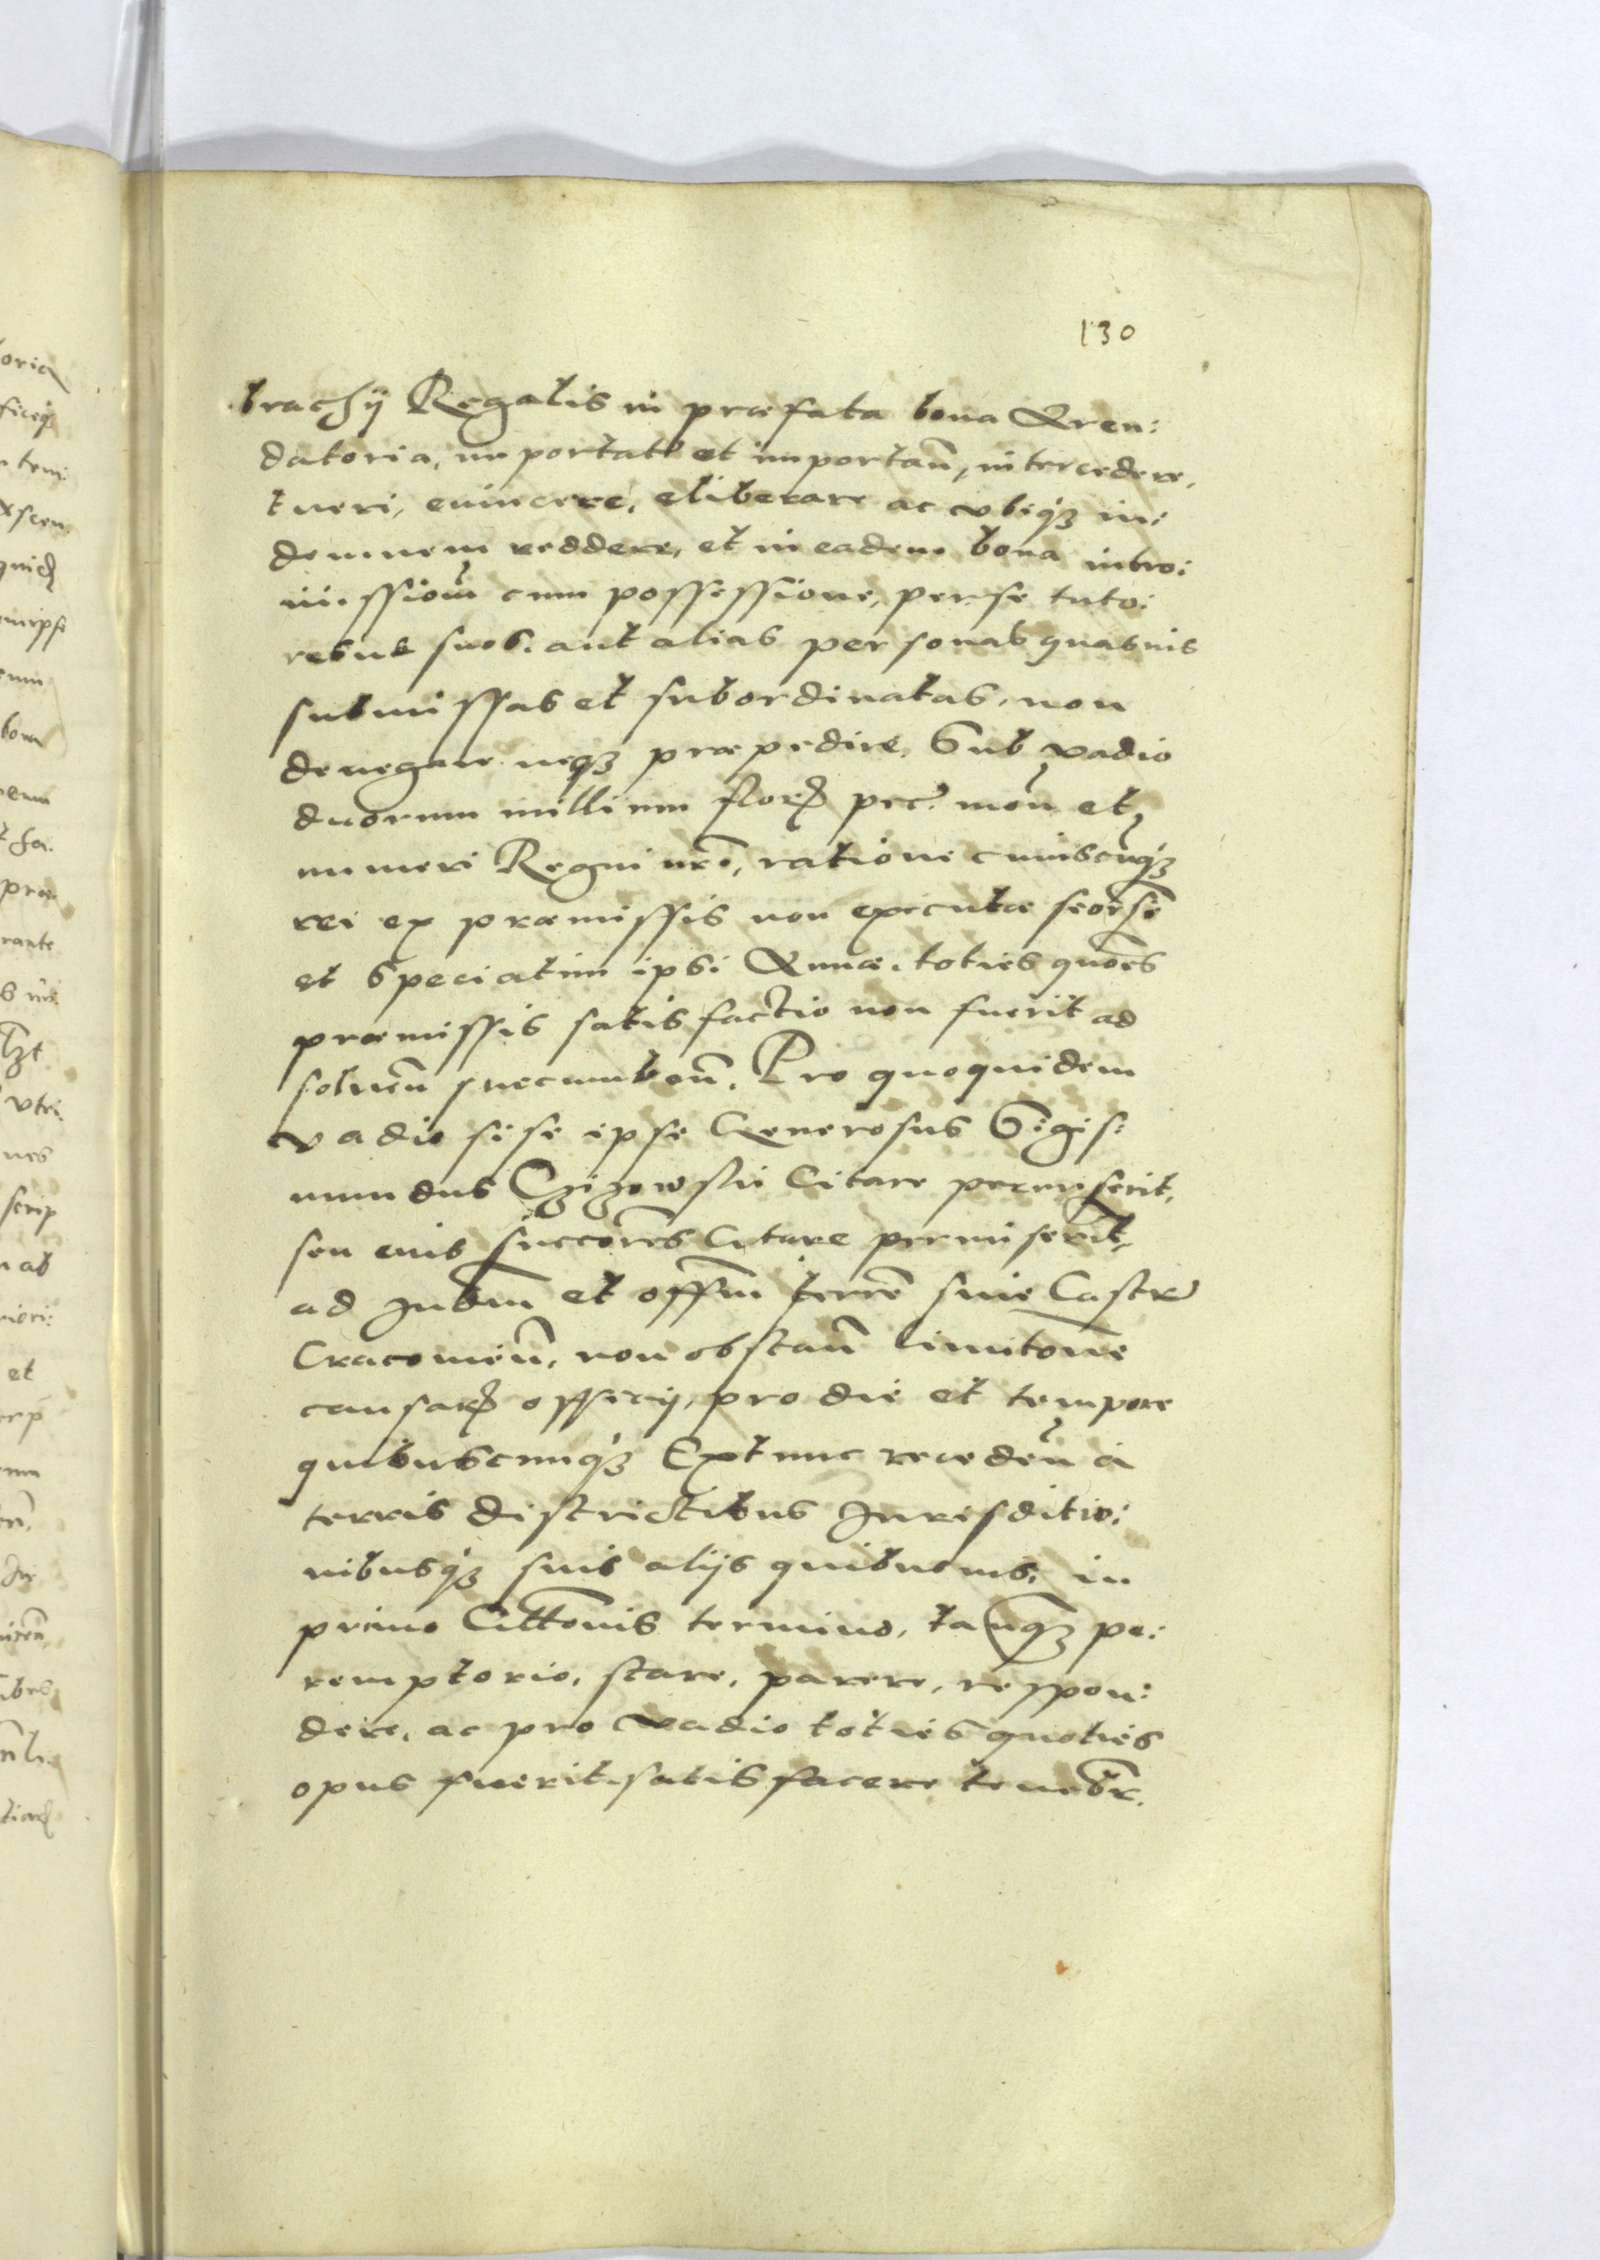 130
brachÿ Regalis in præfata bona Aren:
datoria, importat et importan̄, intercedere,
tueri, euincere, eliberare ac vbiqꝫ in:
demnem reddere, et in eadem bona intro:
missiom̄ cum possessione, per se tuto:
res uel suos. aut alias personas quasuis
submissas et subordinatas, non
denegare neqꝫ præpedire, Sub vadio
duorum millium floꝝ pec. mon̄ et
numeri Regni nr̄i, ratione cuiuscun̄qꝫ
rei ex præmissis non executæ seors̄e
et Speciatim ipsi Annæ. toties quo͠es
præmissis satisfactio non fuerit ad
soluen̄ succumben̄. Pro quoquidem
vadio sese ipse Generosus Sigis:
mundus Czizowski Citare permiserit,
seu eius succo͠res Citare permiserin̄t,
ad Jud̄m et off̄m terr̄e siue Castr̄
Cracouien̄, non obstan̄ limito͞ne
causaꝝ officij, pro die et tempore
quibuscunqꝫ Extunc receden̄ a
terris districtibus Jurisditio:
nibusqꝫ suis alijs quibusuis, in
primo Citt͞onis termino, tanqꝫ pe:
remptorio, stare, parere, respon:
dere, ac pro vadio toties quoties
opus fuerit, satisfacere teneb̄r.